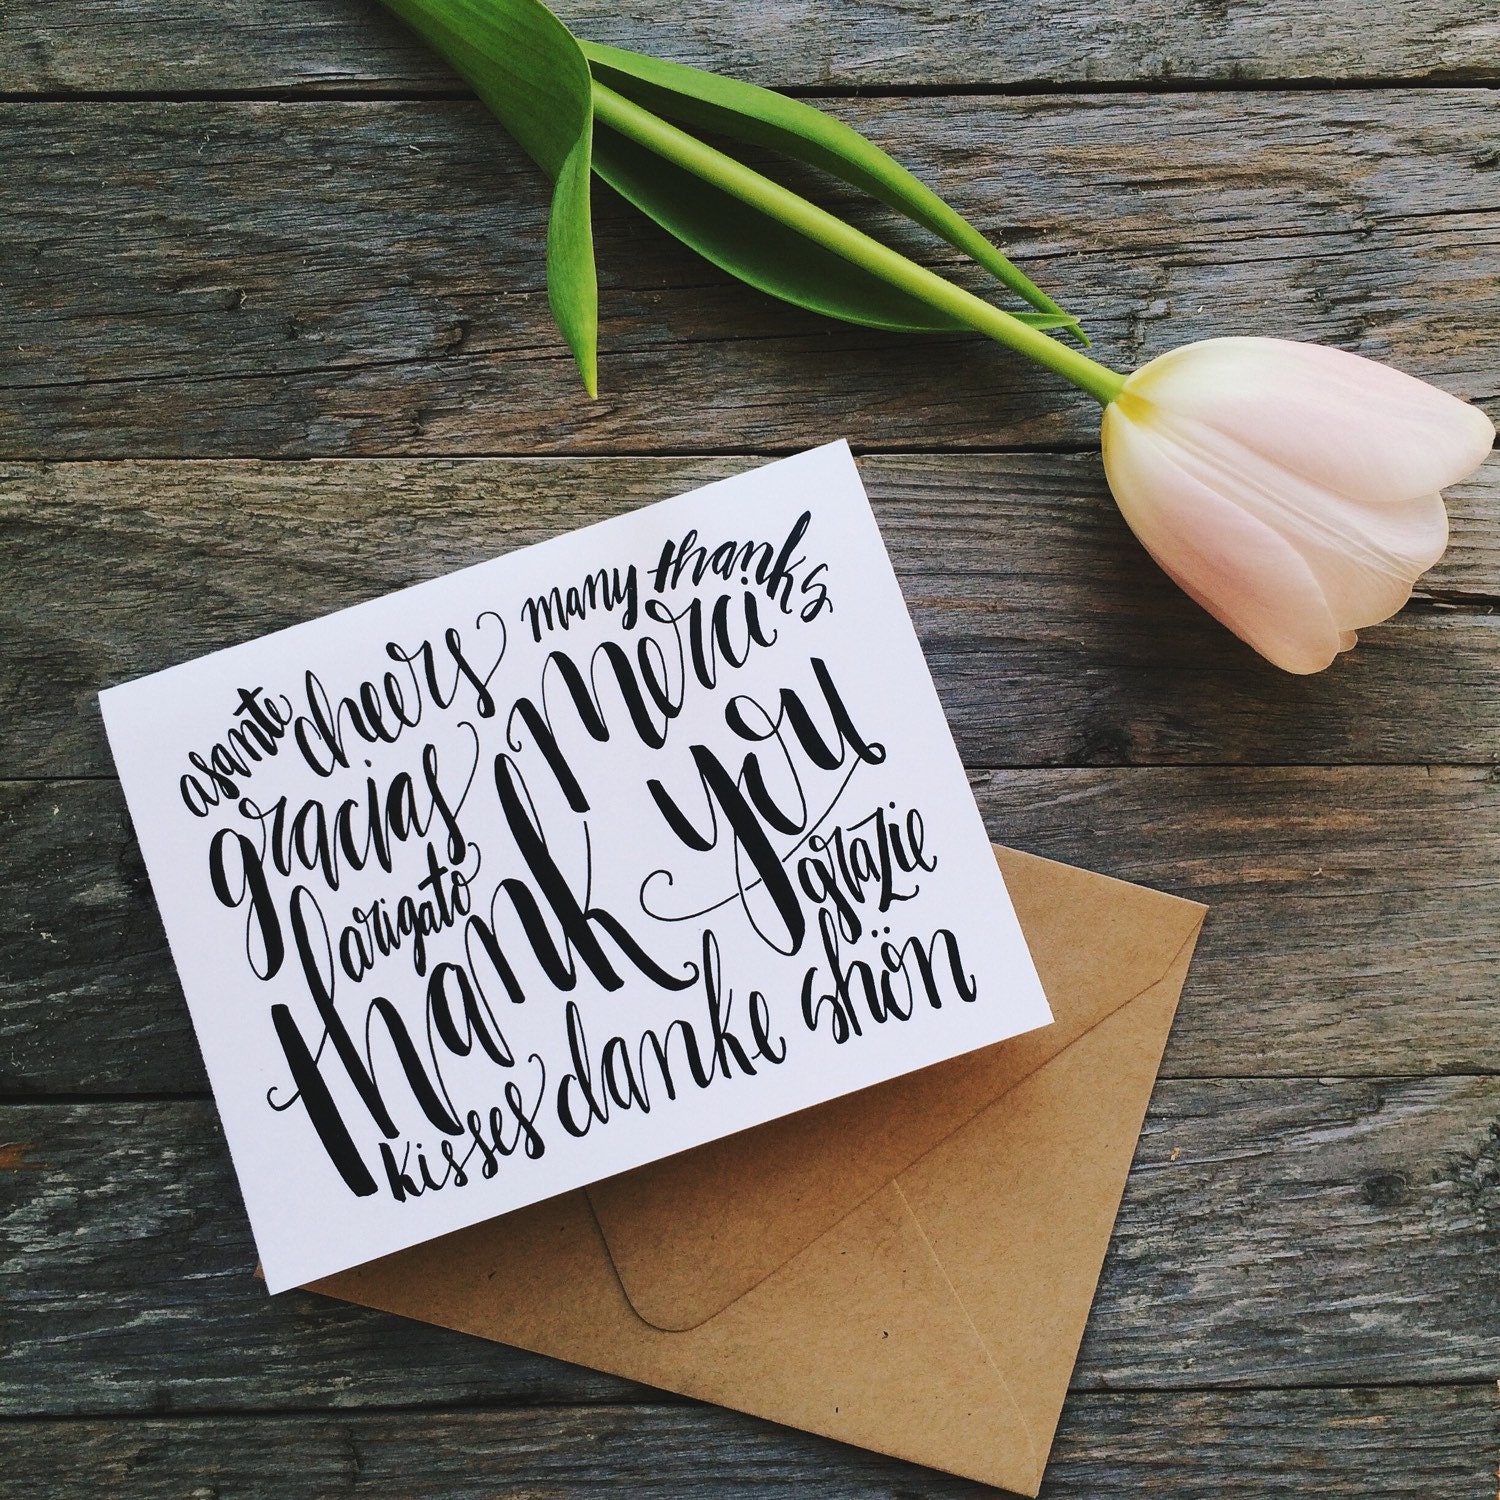 many thanks
asante cheers merci
gracias you
arigato grazie
thank
kisses danke shön